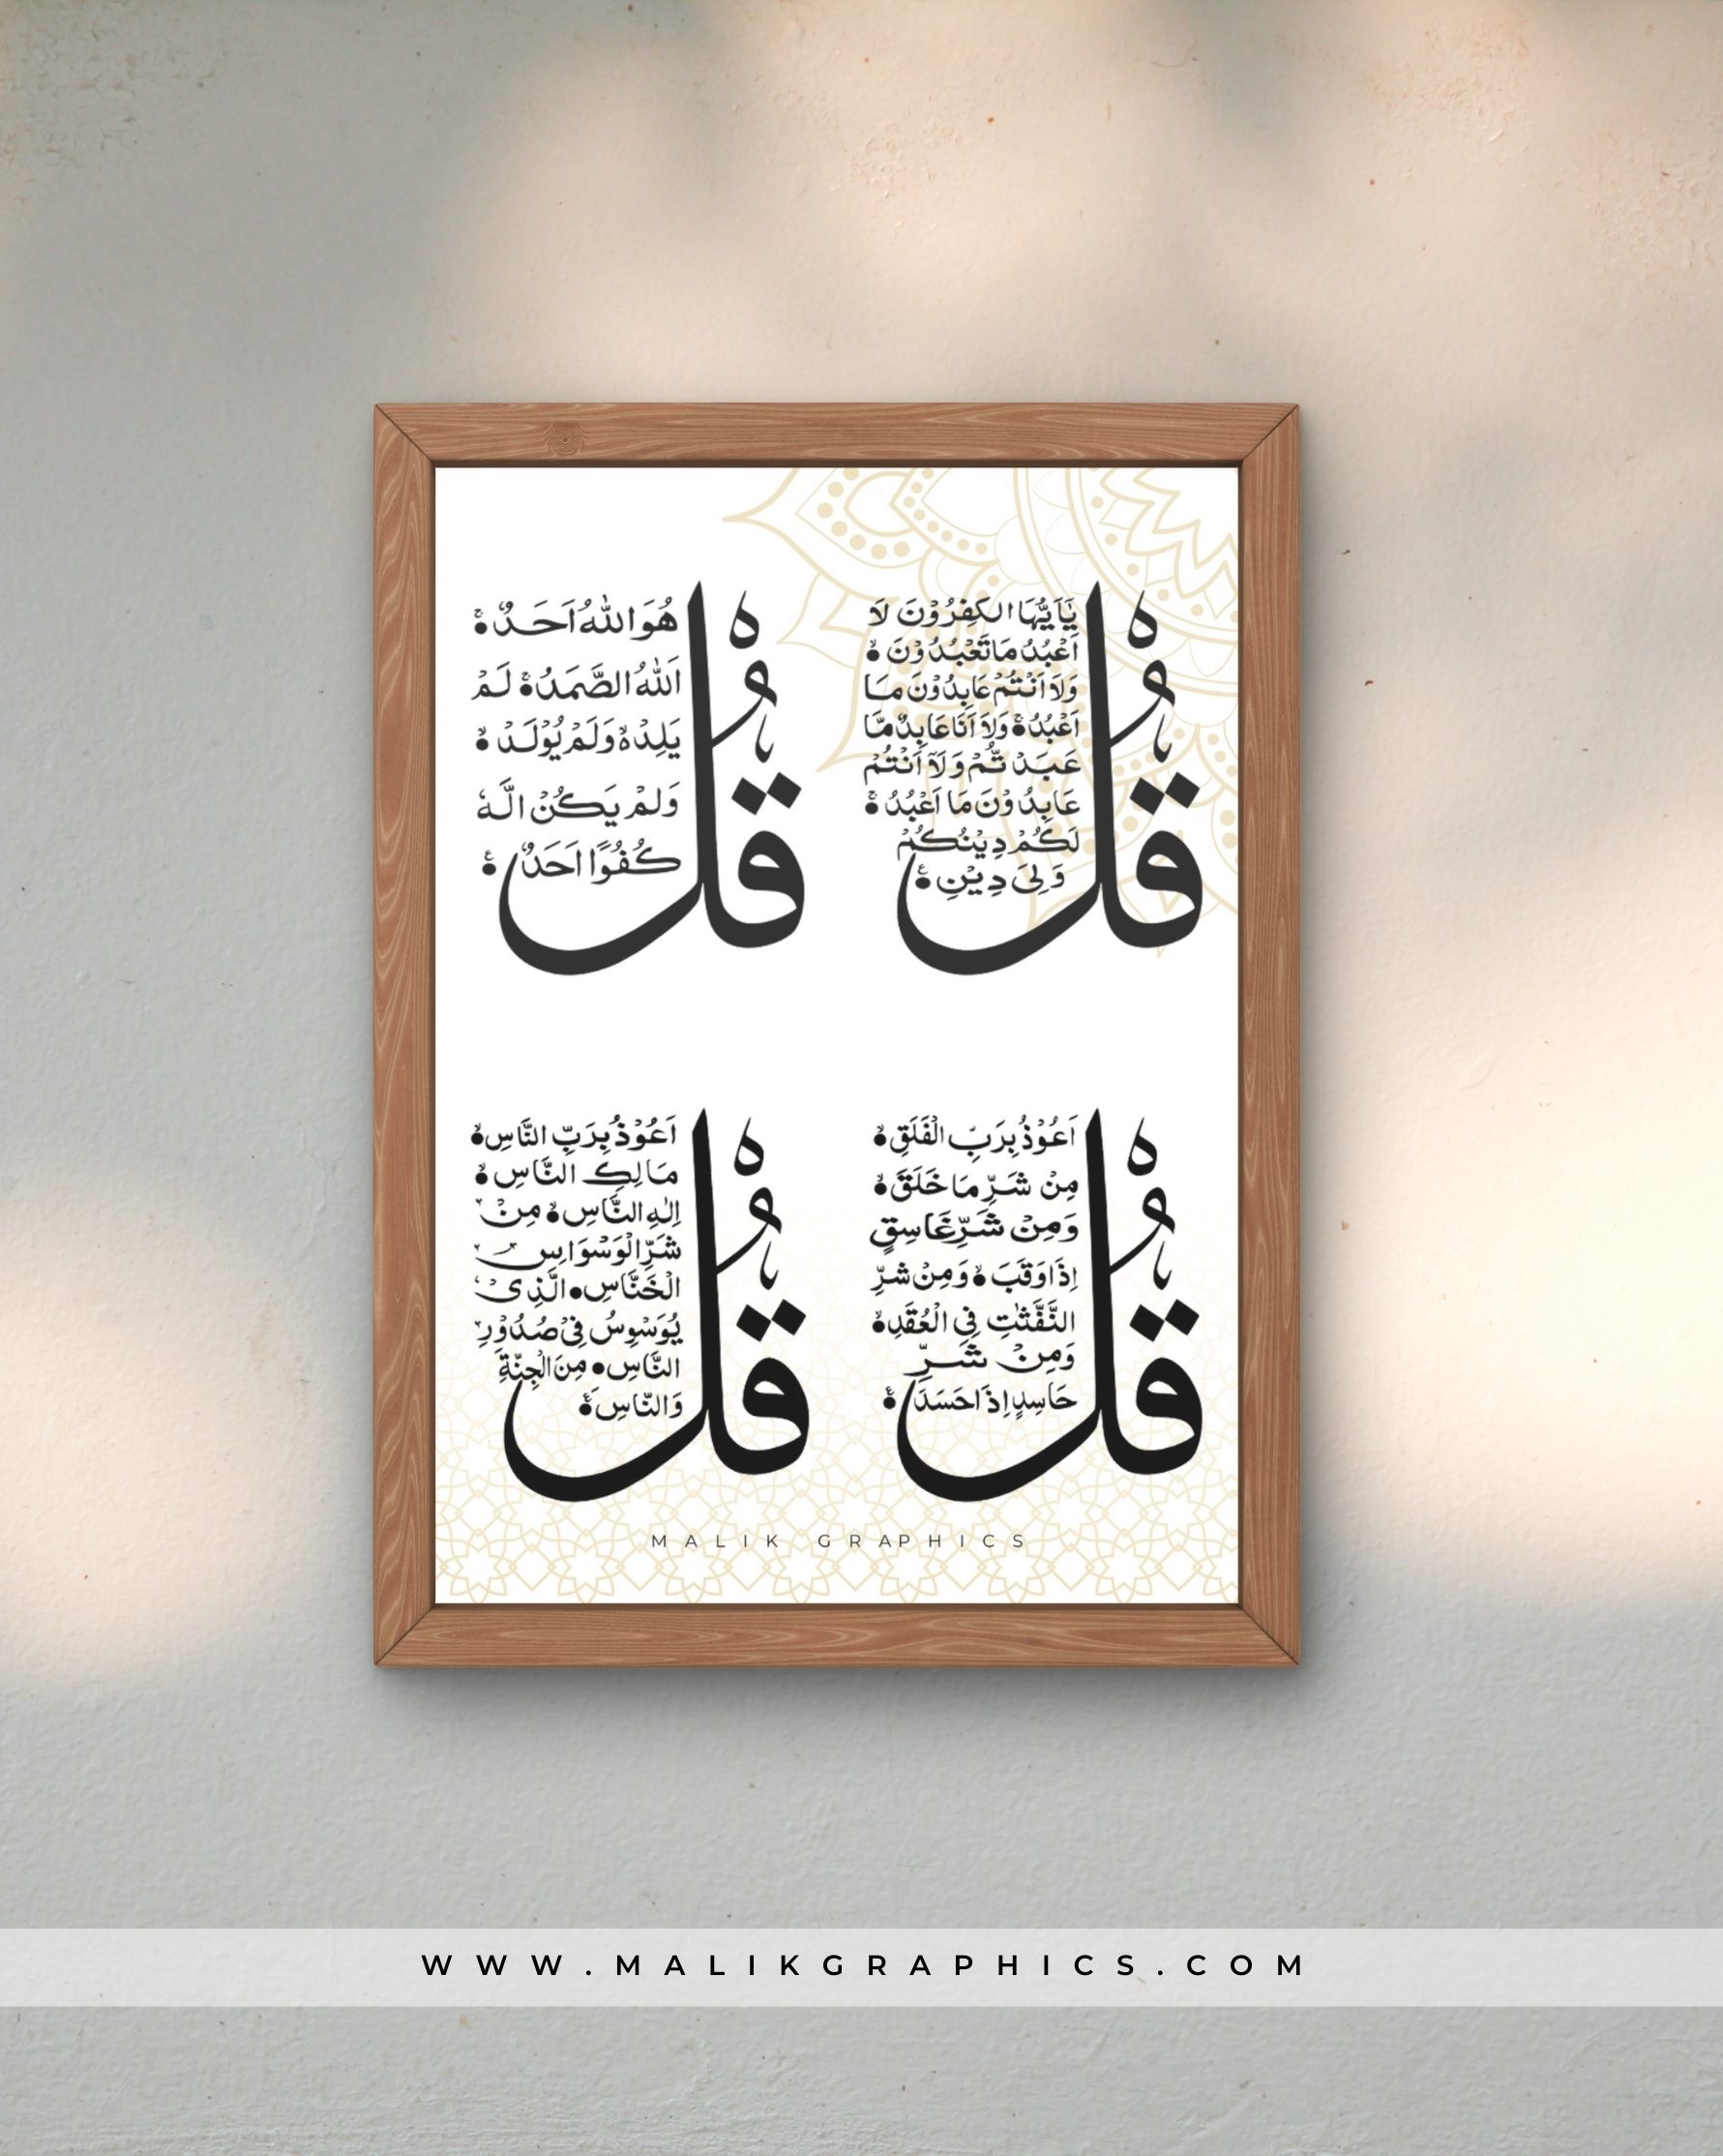 قُلْ
يٰٓاَيُّهَا الكٰفِرُوْنَ لَا
اَعْبُدُ مَا تَعْبُدُوْنَ ۙ
وَلَا اَنْتُمْ عَابِدُوْنَ مَا
اَعْبُدُ ۚ وَلَا اَنَا عَابِدٌ مَّا
عَبَدْ تُّمْ وَلَآ اَنْتُمْ
عَابِدُوْنَ مَا اَعْبُدُ ؕ
لَكُمْ دِيْنُكُمْ
وَلِىَ دِيْنِ
قُلْ
هُوَ اللّٰهُ اَحَدٌ ۚ
اَللّٰهُ الصَّمَدُ ۚ لَمْ
يَلِدْ ۙ وَلَمْ يُوْلَدْ ۙ
وَلَمْ يَكُنْ الَّهٗ
كُفُوًا اَحَدٌ
قُلْ
اَعُوْذُ بِرَبِّ الْفَلَقِ ۙ
مِنْ شَرِّ مَا خَلَقَ ۙ
وَمِنْ شَرِّ غَاسِقٍ
اِذَا وَقَبَ ۙ وَمِنْ شَرِّ
النَّفّٰثٰتِ فِي الْعُقَدِ ۙ
وَمِنْ شَرِّ
حَاسِدٍ اِذَا حَسَدَ
قُلْ
اَعُوْذُ بِرَبِّ النَّاسِ ۙ
مَالِكِ النَّاسِ ۙ
اِلٰهِ النَّاسِ ۙ مِنْ
شَرِّ الْوَسْوَاسِ
الْخَنَّاسِ الَّذِىْ
يُوَسْوِسُ فِىْ صُدُوْرِ
النَّاسِ مِنَ الْجِنَّةِ
وَالنَّاسِ
MALIK GRAPHICS
WWW.MALIKGRAPHICS.COM